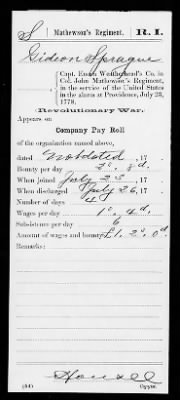 S Mathewson's Regiment. R.I.
Gideon Sprague
Capt. Enoch Weatherhead's Co. in
Col. John Mathewson's Regiment,
in the service of the United States
in the alarm at Providence, July 23,
1778.
Revolutionary War.
Appears on
Company Pay Roll
of the organization named above,
dated Not dated, 17 .
Bounty per day 2s. d.
When joined July 23, 17 .
When discharged July 26, 17 .
Number of days 4
Wages per day 1s. 4d.
Subsistence per day 6
Amount of wages and bounty £1. 2s. 0d
Remarks:
(44) Copyist.